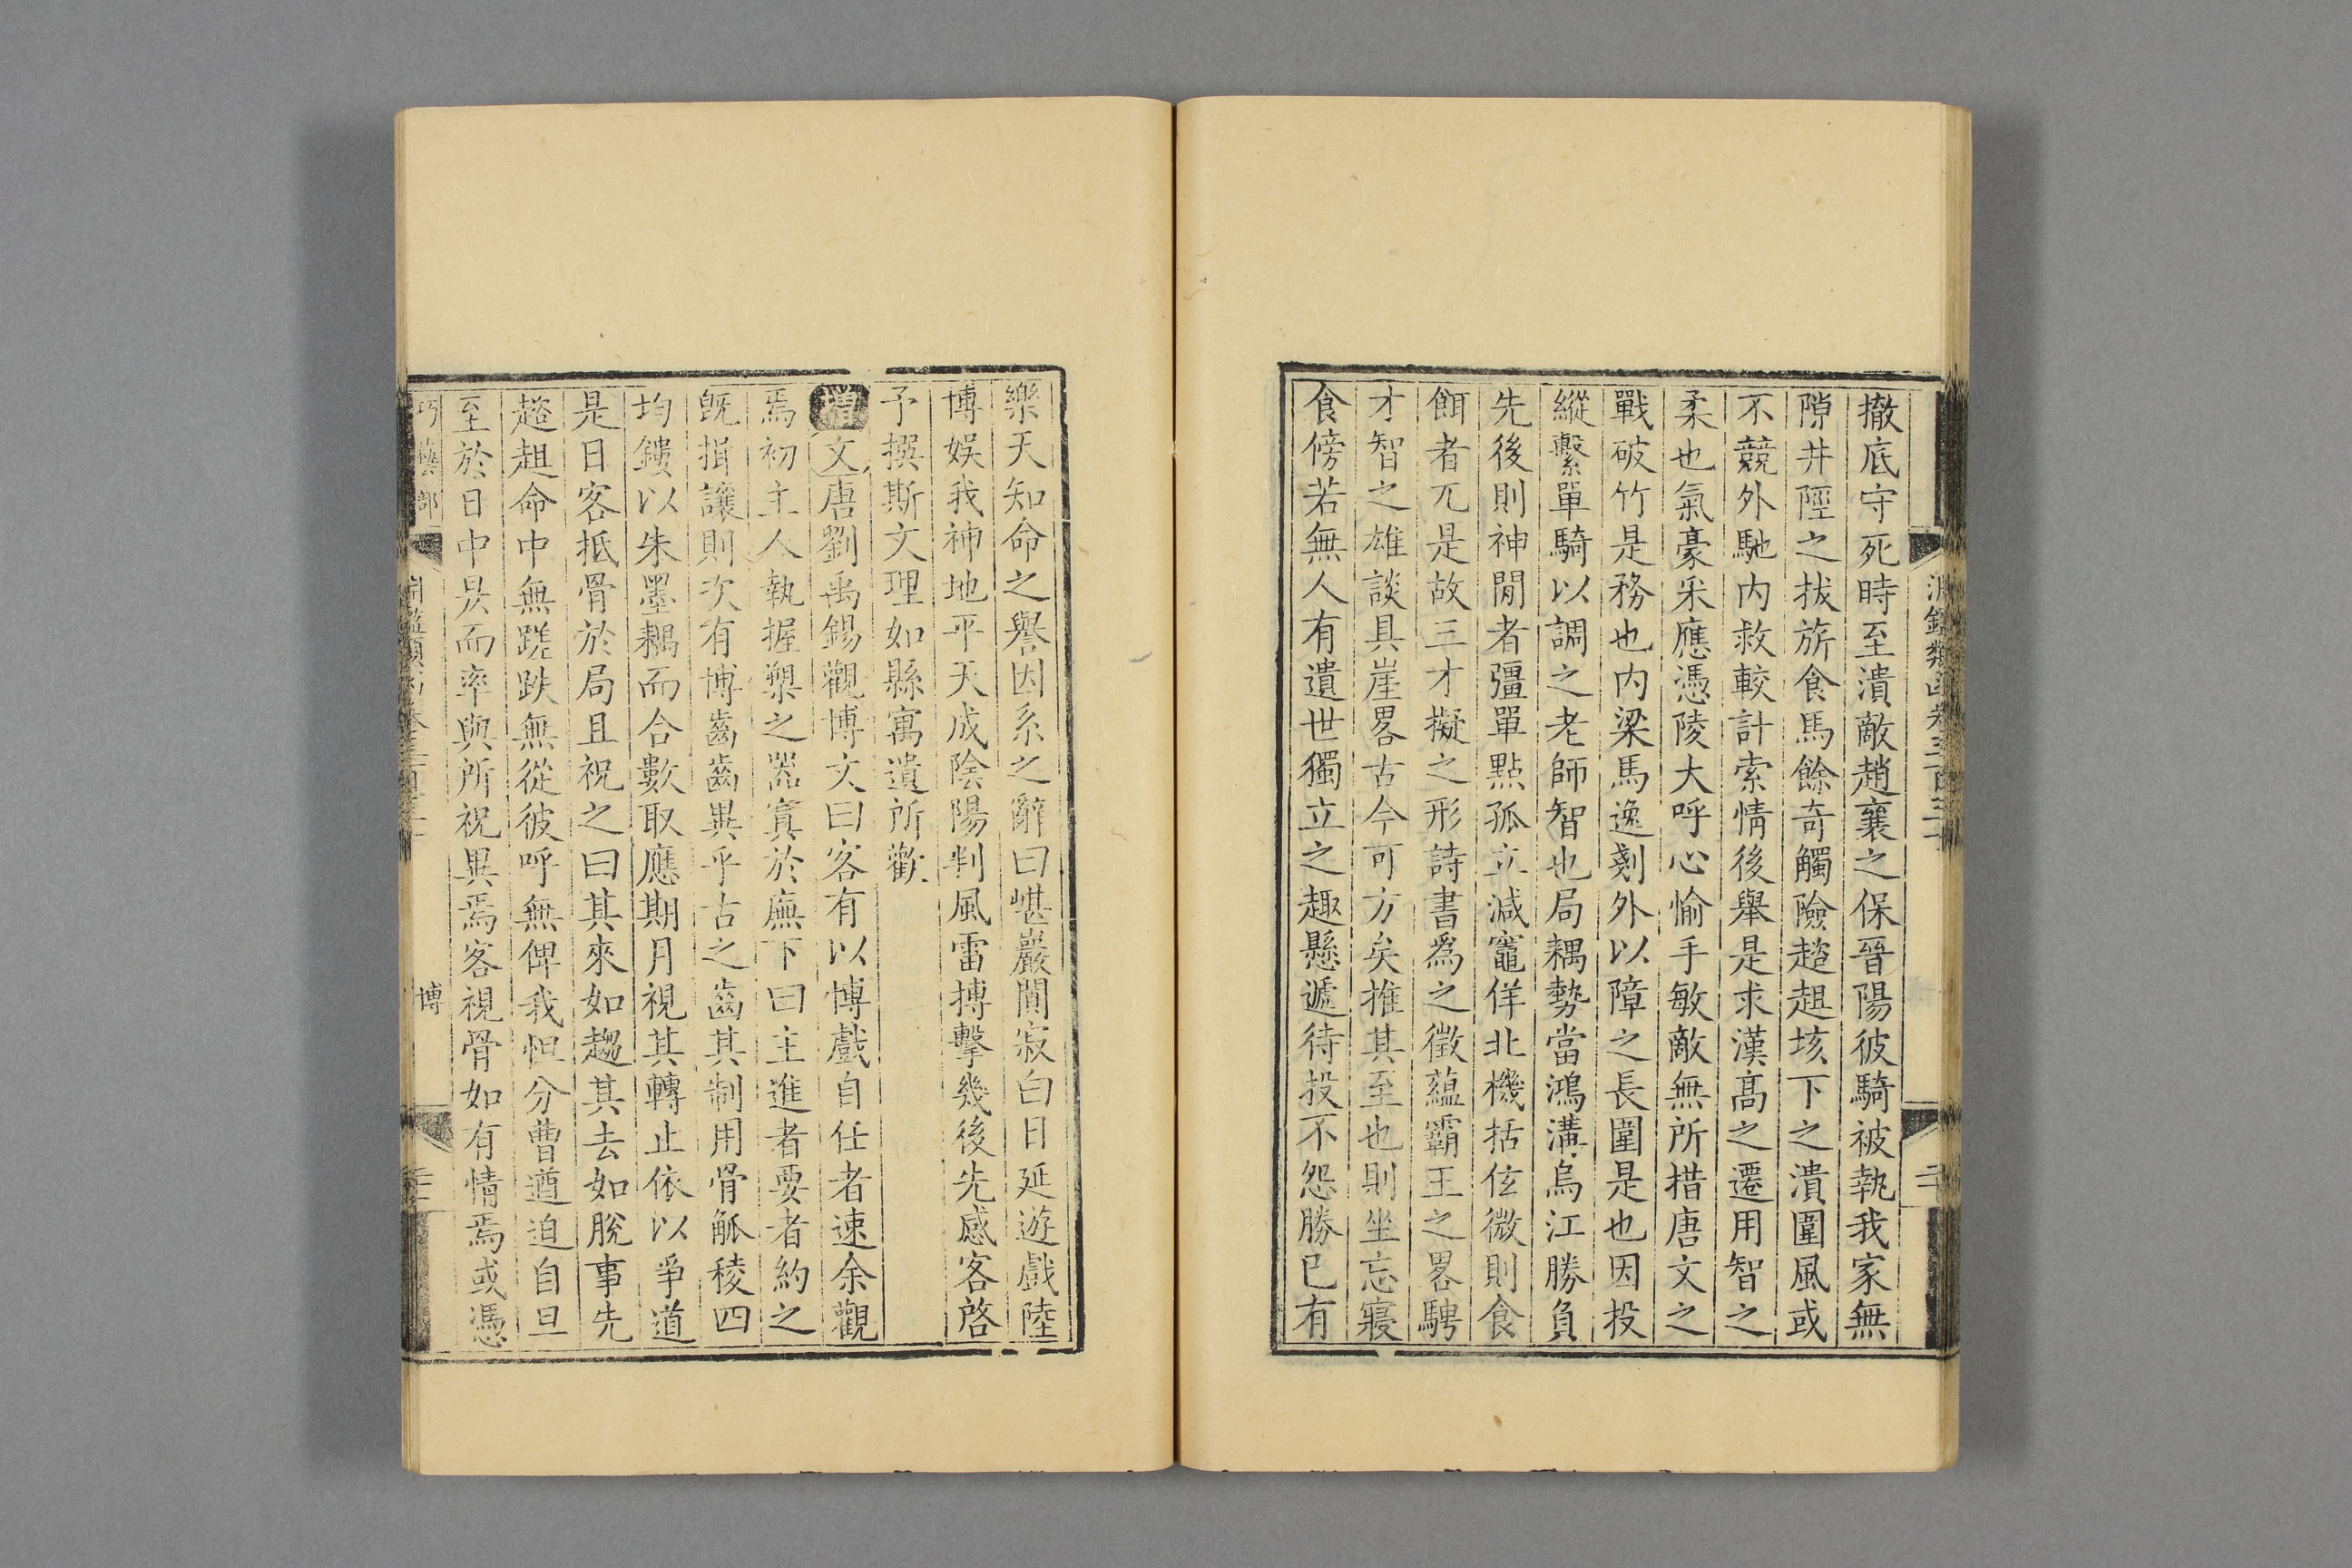 淵鑑類函卷三百三十
二十
撤底守死時至潰敵趙襄之保晉陽彼騎被執我家無
隙井陘之拔旂食馬餘奇觸險趦趄垓下之潰圍風或
不競外馳内救較計索情後舉是求漢高之遷用智之
柔也氣豪采應憑陵大呼心愉手敏敵無所措唐文之
戰破竹是務也内梁馬逸剗外以障之長圍是也因投
縱繫單騎以調之老師智也局耦勢當鴻溝烏江勝負
先後則神閒者彊單點孤立減竈佯北機括伭微則食
餌者兀是故三才擬之形詩書爲之徵蘊霸王之畧騁
才智之雄談具崖畧古今可方矣推其至也則坐忘寢
食傍若無人有遺世獨立之趣懸遞待投不怨勝已有
樂天知命之譽因系之辭曰嵁巖閴寂白日延遊戲陸
博娱我神地平天成陰陽判風雷搏擊幾後先感客啓
予撰斯文理如縣寓遺所歡
增文唐劉禹錫觀博文曰客有以博戲自任者速余觀
焉初主人執握槊之器寘於廡下曰主進者要者約之
既揖讓則次有博齒齒異乎古之齒其制用骨觚稜四
均鏤以朱墨耦而合數取應期月視其轉止依以爭道
是日客抵骨於局且祝之曰其來如趨其去如脫事先
趦趄命中無蹉跌無從彼呼無俾我怛分曹遒迫自旦
至於日中昃而率與所祝異焉客視骨如有情焉或憑
巧藝部
博